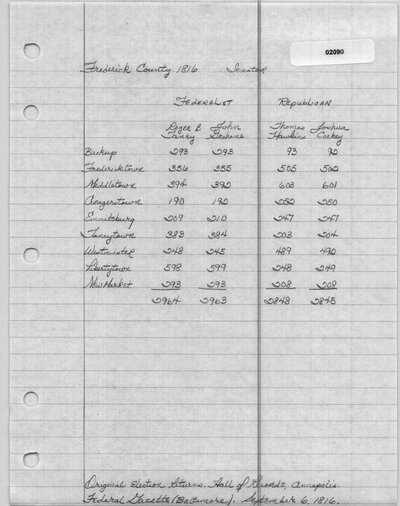 02090
Frederick County 1816 Senator
FEDERALIST REPUBLICAN
Roger B John Thomas Joshua
Taney Grahame Hawkins Cockey
Buckup 293 293 93 92
Fredericktown 356 355 505 502
Middletown 394 392 603 601
Creagerstown 190 192 252 250
Emmitsburg 209 210 247 247
Taneytown 383 384 203 204
Westminster 248 245 489 492
Libertytown 598 599 248 249
New Market 293 293 208 208
2964 2963 2848 2845
Original Election Returns. Hall of Records, Annapolis.
Federal Gazette (Baltimore). September 6, 1816.